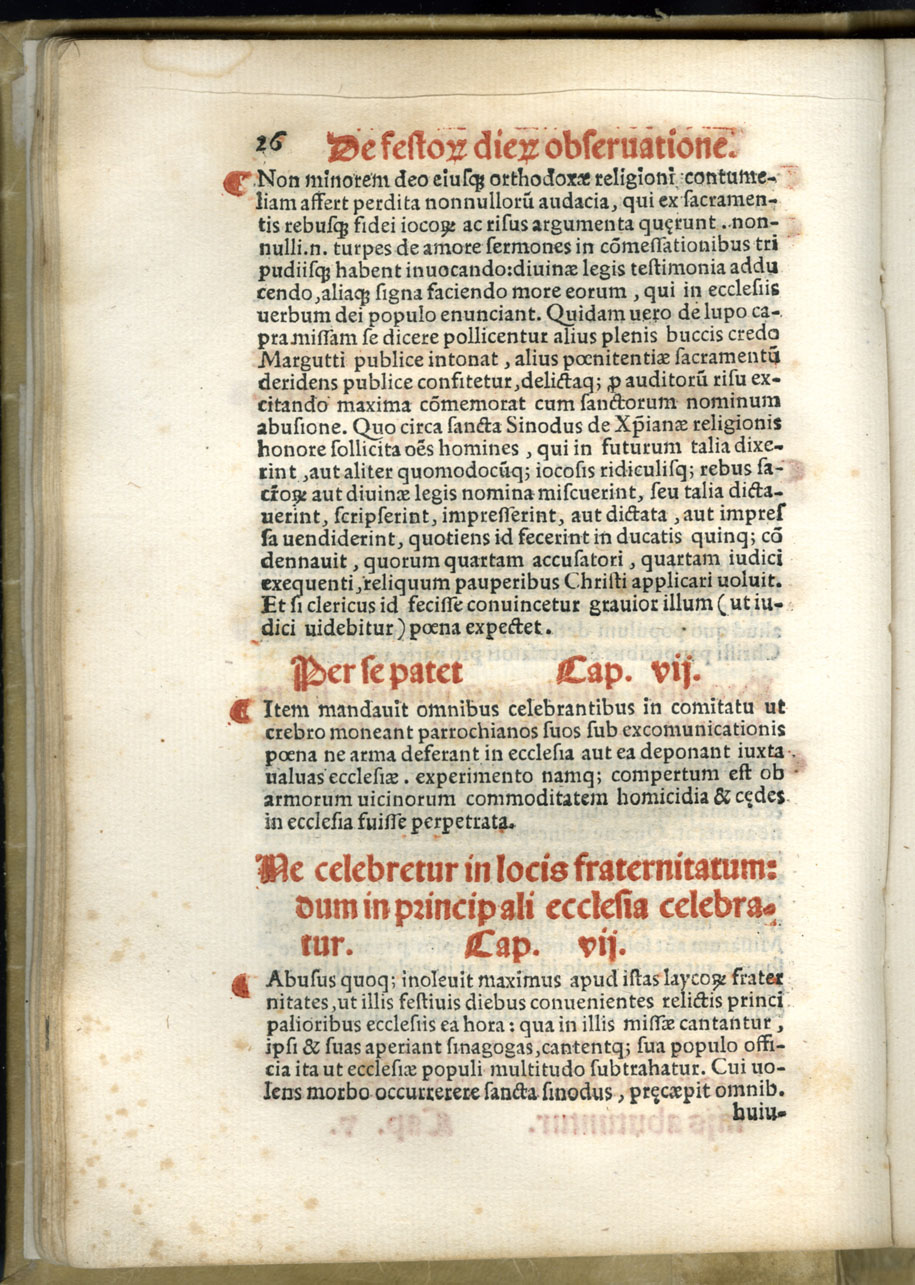 26 De festoꝝ dieꝝ obſeruatione.
Non minorem deo eiuſqꝫ orthodoxæ religioni contume-
liam affert perdita nonnullorū audacia, qui ex ſacramen-
tis rebuſqꝫ fidei iocoꝝ ac riſus argumenta quęrunt . non-
nulli.n. turpes de amore ſermones in cōmeſſationibus tri
pudiiſqꝫ habent inuocando:diuinæ legis teſtimonia addu
cendo,aliaqꝫ ſigna faciendo more eorum , qui in eccleſiis
uerbum dei populo enunciant. Quidam uero de lupo ca-
pra miſſam ſe dicere pollicentur alius plenis buccis credo
Margutti publice intonat , alius pœnitentiæ ſacramentū
deridens publice confitetur,delictaq; ꝓ auditorū riſu ex-
citando maxima cōmemorat cum ſanctorum nominum
abuſione. Quo circa ſancta Sinodus de Xp̄ianæ religionis
honore ſollicita oēs homines , qui in futurum talia dixe-
rint ,aut aliter quomodocūq; iocoſis ridiculiſq; rebus ſa-
cr̄oꝝ aut diuinæ legis nomina miſcuerint, ſeu talia dicta-
uerint, ſcripſerint, impreſſerint, aut dictata , aut impreſ
ſa uendiderint, quotiens id fecerint in ducatis quinq; cō
dennauit , quorum quartam accuſatori , quartam iudici
exequenti, reliquum pauperibus Chriſti applicari uoluit.
Et ſi clericus id feciſſe conuincetur grauior illum ( ut iu-
dici uidebitur ) pœna expectet .
Per ſe patet Cap. vij.
Item mandauit omnibus celebrantibus in comitatu ut
crebro moneant parrochianos ſuos ſub excomunicationis
pœna ne arma deferant in eccleſia aut ea deponant iuxta
ualuas eccleſiæ . experimento namq; compertum eſt ob
armorum uicinorum commoditatem homicidia & cędes
in eccleſia fuiſſe perpetrata.
Ne celebretur in locis fraternitatum:
dum in principali eccleſia celebra-
tur. Cap. vij.
Abuſus quoq; inoleuit maximus apud iſtas laycoꝝ frater
nitates,ut illis feſtiuis diebus conuenientes relictis princi
palioribus eccleſiis ea hora : qua in illis miſſæ cantantur ,
ipſi & ſuas aperiant ſinagogas,cantentq; ſua populo offi-
cia ita ut eccleſiæ populi multitudo ſubtrahatur. Cui uo-
lens morbo occurrerere ſancta ſinodus , pręcæpit omnib.
huiu-